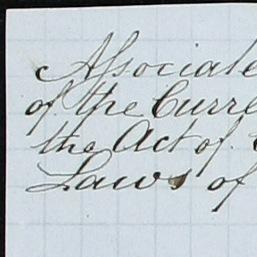 Associate
of the Curre
the Act of
Laws of